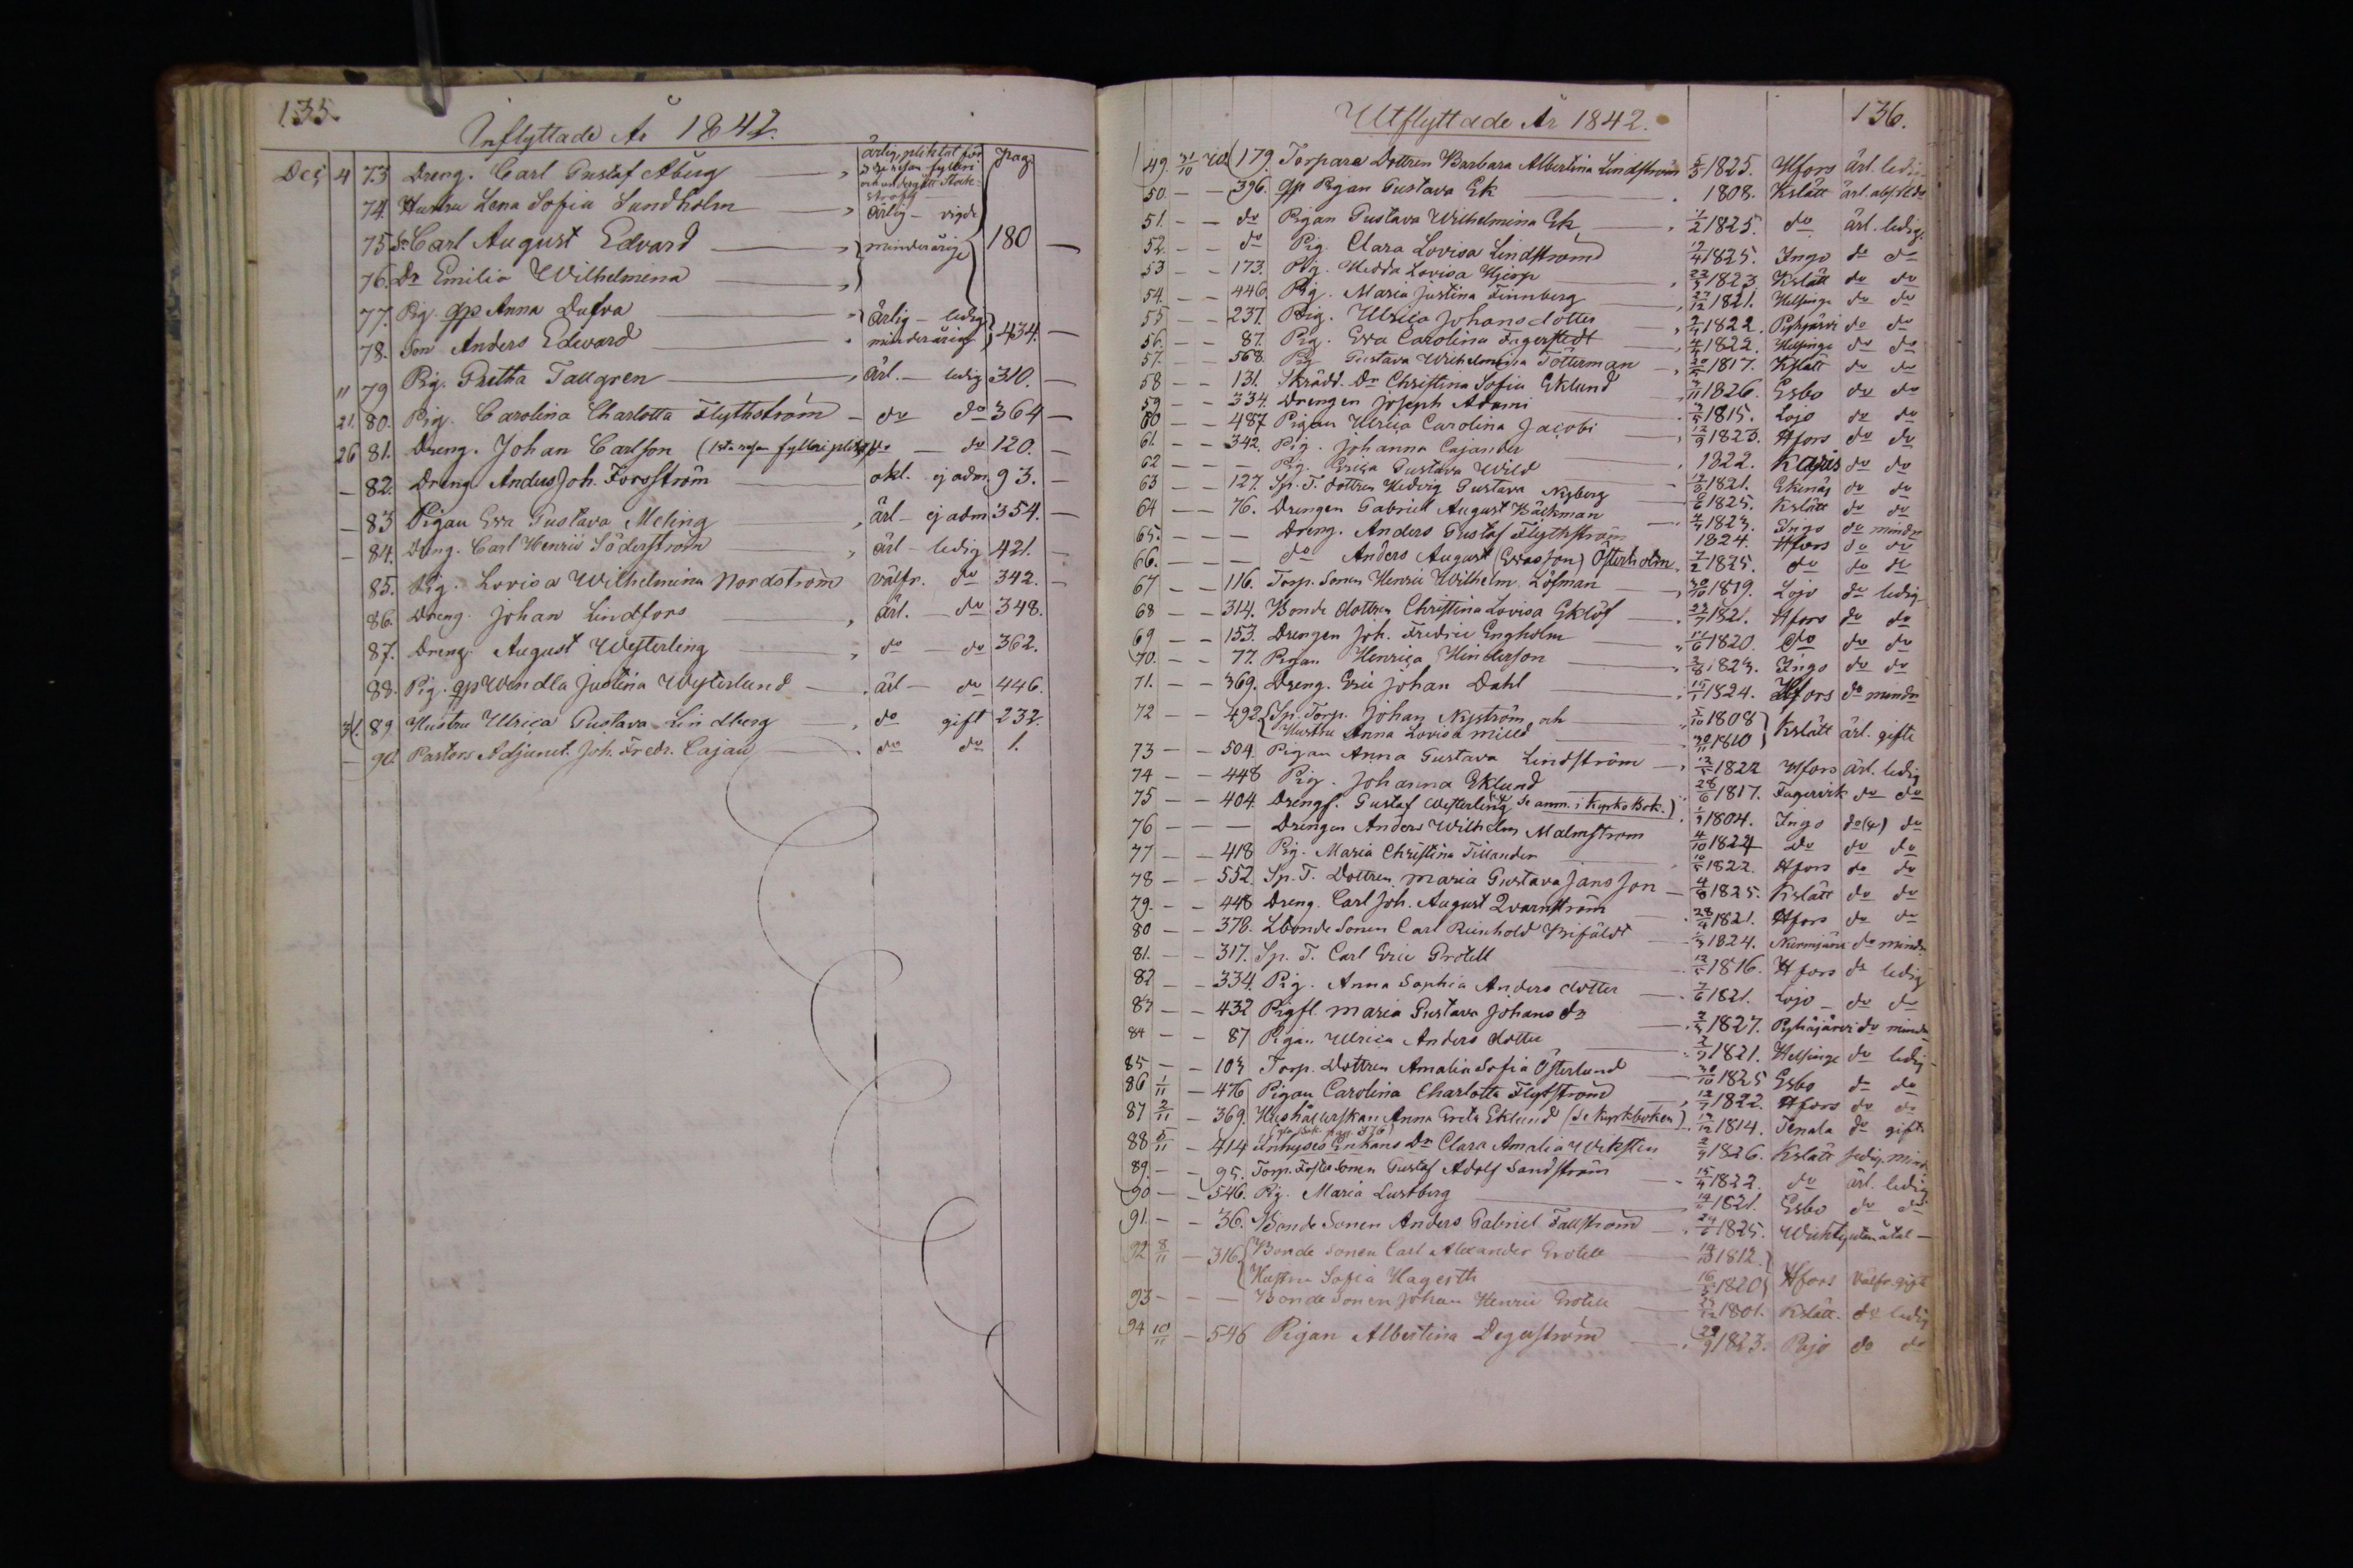 135.
Inflyttade År 1842.
Dec. 4 73 Dreng. Carl Gustaf Åberg — ärlig, plichtat för
och undergått Stock- strafft pag.
74. Hustru Lena Sofia Sundholm — ärlig — vigde
75 Sn Carl August Edvard — minderårige 180 —
76. Dr Emilia Wilhelmina —
77. Pig. qp Anna Dufva — ärlig — ledig
78. Son Anders Edward — minderårig 434. —
" 79 Pig. Gretha Tallgren — ärl. — ledig 310. —
21. 80. Pig. Carolina Charlotta Flythström — do do 364 —
26 81. Dreng. Johan Carlson (1sta resan fylleri plikt) do — do 120. —
— 82. Dreng Anders Joh. Forsström — okl. ej adm 93. —
— 83 Pigan Eva Gustava Meling — ärl — ej adm 354. —
— 84. Dreng. Carl Henric Söderström — ärl — ledig 421. —
85. Pig. Lovisa Wilhelmina Nordström välfr. do 342. —
86. Dreng. Johan Lindfors — ärl. — do 348.
87. Dreng. August Westerling — do — do 362.
88. Pig. qp Wendla Justina Westerlund — ärl — do 446.
31. 89 Hustru Ulrica Gustava Lindberg — do gift 232.
— 90. Pastors Adjunct. Joh. Fredr. Cajan — do do 1.
Utflyttade År 1842. 136.
49. 31/10 179. Torpare Dottren Barbara Albertina Lindström 5/5 1825. Hfors ärl. ledig
50 — — 396. qp Pigan Gustava Ek 1808. Kslätt ärl.
51. — — do Pigan Gustava Wilhelmina Ek 1/2 1825. do ärl. ledig.
52. — — do Pig. Clara Lovisa Lindström 1825. Ingo do do
53 — — 173. Pig. Hedda Lovisa Hjerp 1823 Kslätt do do
54. — — 446. Pig. Maria Justina Finnberg 27/12 1821. Helsinge do do
55 — — 237. Pig. Ulrica Johansdotter 1822. Pyhäjärvi do do
56. — — 87. Pig. Eva Carolina Fagerstedt 1822. Helsinge do do
57. — — 568. Pig Gustava Wilhelmina Tötterman 1817. Kslätt do do
58 — — 131. Skrädd. Dr Christina Sofia Eklund 1826. Esbo do do
59 — — 334. Drengen Joseph Adami 1815. Lojo do do
60 — — 487 Pigan Ulrica Carolina Jacobi 12/9 1823. Hfors do do
61. — — 342. Pig. Johanna Cajander 1822. Karis do do
62 — — — Pig. Erica Gustava Wild 1821. Ekenäs do do
63 — — 127. Sp. T. dottren Hedvig Gustava Nyberg 1825. Kslätt do do
64 — — 76. Drengen Gabriel August Bäckman 1823. Ingo do mindr
65. — — — Dreng. Anders Gustaf Flythström 1824. Hfors do do
66. — — — do Anders August (Evasson) Österholm. 1825. do do do
67 — — 116. Torp. Sonen Henric Wilhelm Löfman 30/10 1819. Lojo do ledig
68 — — 314. Bonde dottren Christina Lovisa Eklöf 1821. Hfors do do
69 — — 153. Drengen Joh. Fredric Engholm 11/6 1820. do do do
70. — — 77. Pigan Henrica Hinderson 1823. Ingo do do
71. — — 369. Dreng. Eric Johan Dahl 1824. Hfors do mindr
72 — — 492 Sp. Torp. Johan Nyström, och 5/10 1808
Hustru Anna Lovisa Milled 30/11 1810 Kslätt ärl. gifte
73 — — 504. Pigan Anna Gustava Lindström 1822 Hfors ärl. ledig
74 — — 448 Pig. Johanna Eklund 28/6 1817. Fagervik do do
75 — — 404. Drengs. Gustaf Westerling se anm. i KyrkoBok.) 1804. Ingo do do
76 — — — Drengen Anders Wilhelm Malmström 4/10 1824 do do do
77 — — 418 Pig. Maria Christina Tillander 10/5 1822. Hfors do do
78 — — 552. Sp. T. Dottren Maria Gustava Jansson 4/8 1825. Kslätt do do
79. — — 448 Dreng. Carl Joh. August Qvarnström 28/4 1821. Hfors do do
80 — — 378. Lbonde Sonen Carl Reinhold Brifäldt 1824. Nurmijärvi do mindr
81. — — 317. Sp. T. Carl Eric Grotell 1816. Hfors do ledig
82 — — 334. Pig. Anna Sophia Andersdotter 7/6 1821. Lojo — do do
83 — — 432 Pigfl. Maria Gustava Johans dr 1827. Pyhäjärvi do mindr
84 — — 87 Pigan Ulrica Andersdotter 1821. Helsinge do ledig
85 — — 103 Torp. Dottren Amalia Sofia Österlund 30/10 1825 Esbo do do
86 1/11 — 476 Pigan Carolina Charlotta Flytström 1822. Hfors do do
87 2/11 — 369. Hushållerskan Anna Greta Eklund (se Kyrkboken) 1814. Tenala do gift
88 5/11 — 414 Inhyses Enkans Dr Clara Amalia Weksten 1826. Kslätt mind
89. — — 95. Torp. Foster Sonen Gustaf Adolf Sandström 15/4 1822. do ärl. ledig
90 — — 546. Pig. Maria Lustberg 1821. Esbo do do
91. — — 36. Bonde Sonen Anders Gabriel Fallström 24/6 1825. Wichtis utan attest —
92 8/11 — 316. Bonde Sonen Carl Alexander Grotell 1812.
Hustru Sofia Hagerth 1820 Hfors välfr. gift
93 — — — Bonde Sonen Johan Henric Grotell 1801. Kslätt. do ledig
94 10/11 — 546 Pigan Albertina Degerström 29/9 1823. Pojo do do